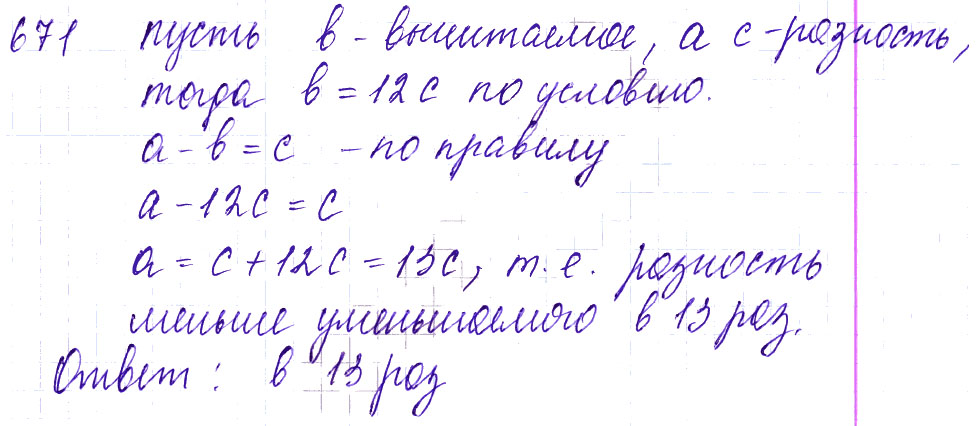 671 пусть в - вычитаемое, а с - разность,
тогда в = 12с по условию.
а - в = с - по правилу
а - 12с = с
а = с + 12с = 13с, т.е. разность
меньше уменьшаемого в 13 раз.
Ответ: в 13 раз